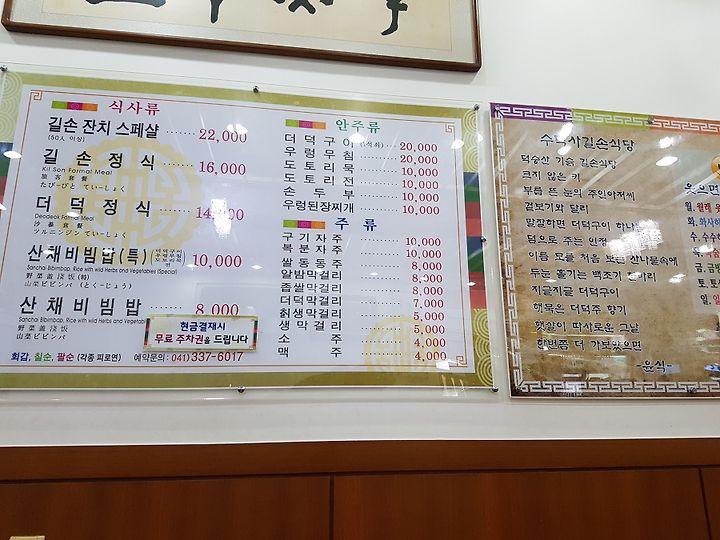 식사류
길손 잔치 스페샬 ······· 22,000
(50人 이상)
길손정식 ·········· 16,000
Kil Son Formal Meal
旅客套餐
たびーびと てぃーしょく
더덕정식
Deodeok Formal Meal
沙蔘套餐
ツルニンジン てぃーしょく
산채비빔밥(특) 10,000
Sanchai Bibimbap, Rice with wild Herbs and Vegetables (Special)
野菜盖浇饭 (特)
山菜ビビンバ (とくーじょう)
산채비빔밥 ········ 8,000
Sanchai Bibimbap, Rice with wild Herbs and Vegetables
野菜盖浇饭
山菜ビビンバ
현금결재시
무료 주차권을 드립니다
화갑, 칠순, 팔순 (각종 피로연) 예약문의: 041) 337-6017
안주류
더덕구이 20,000
우렁무침 20,000
도토리묵 10,000
도토리전 10,000
손두부 10,000
우렁된장찌개 10,000
주류
구기자주 10,000
복분자주 10,000
쌀동동주 8,000
알밤막걸리 8,000
좁쌀막걸리 8,000
더덕막걸리 7,000
칡생막걸리 5,000
생막걸리 5,000
소주 4,000
맥주 4,000
수덕사길손식당
덕숭산 기슭 길손식당
크지 않은 키
부릅 뜬 눈의 주인아저씨
겉보기와 달리
말잘하면 더덕구이 하나
덤으로 주는 인정
이름 모를 처음 보는 산나물속에
두눈 흘기는 백조기 한마리
지글지글 더덕구이
해묵은 더덕주 향기
햇살이 따사로운 그날
한번쯤 더 가보았으면
-윤식-
웃으면